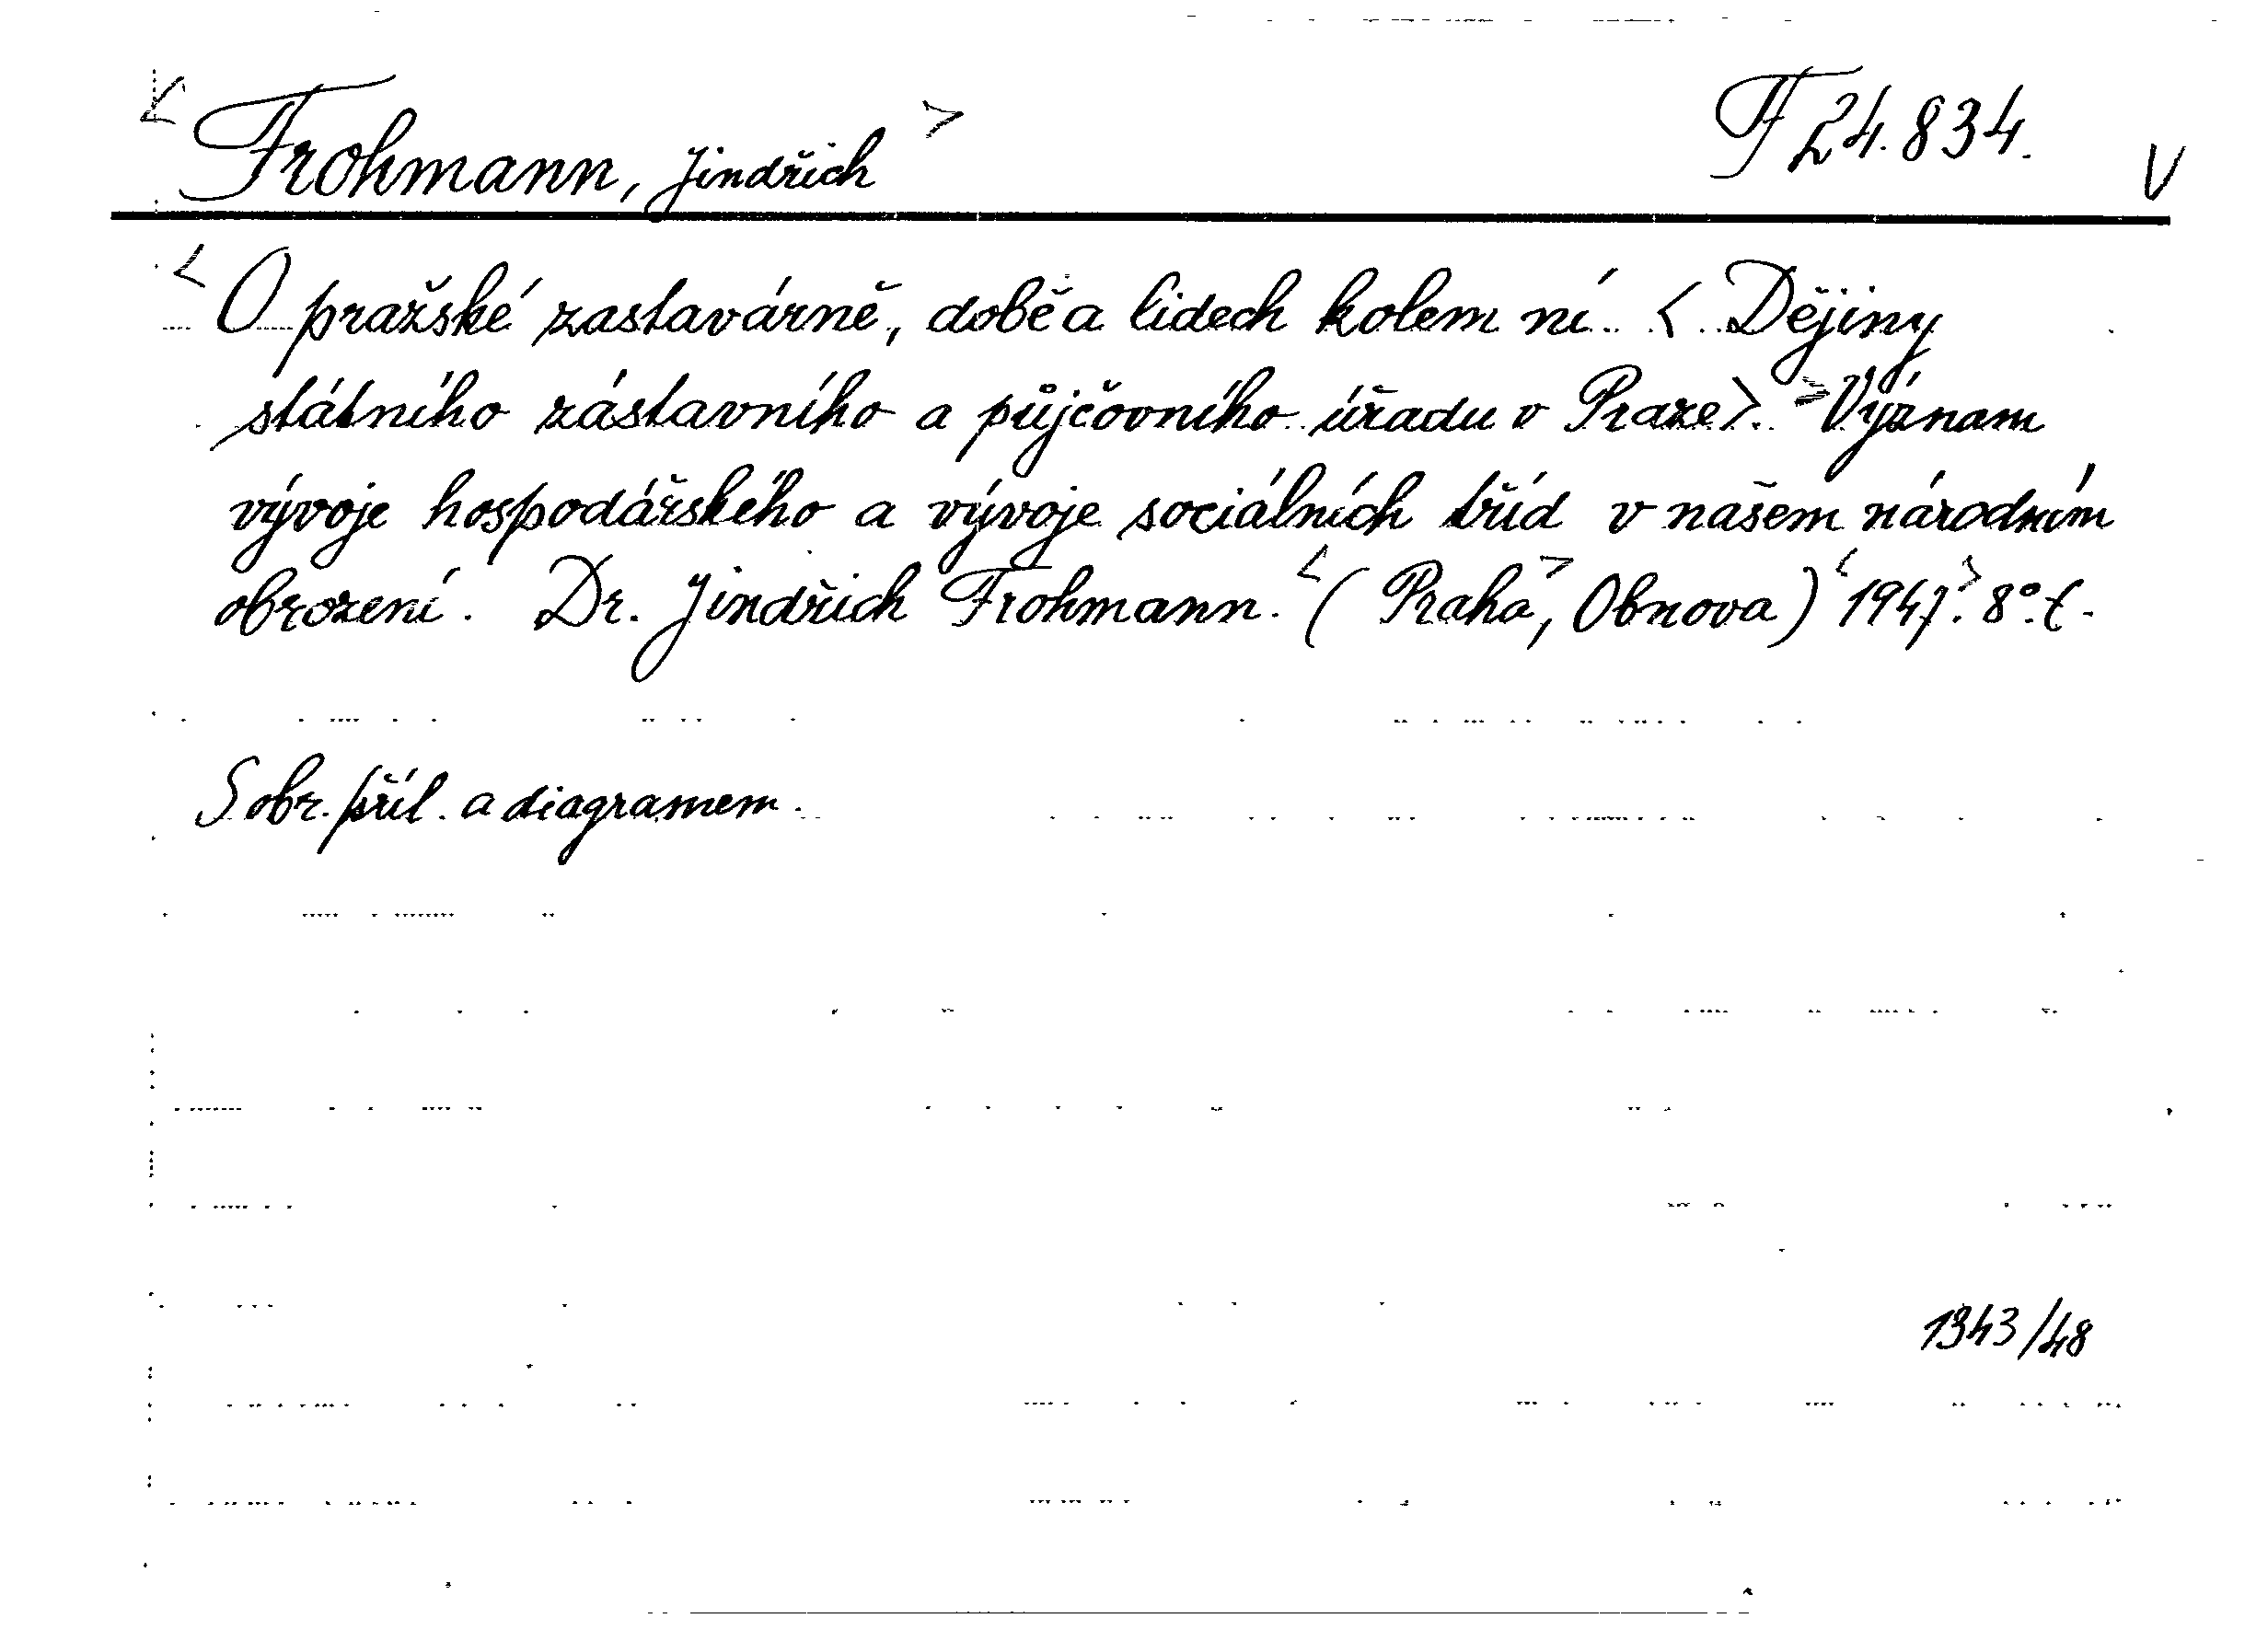 < Frohmann, Jindřich > F 24.834. V
< O pražské zastavárně, době a lidech kolem ní < Dějiny
státního zástavního a půjčovního úřadu v Praze>. > Význam
vývoje hospodářského a vývoje sociálních tříd v našem národním
obrození. Dr. Jindřich Frohmann. < ( Praha >, Obnova) < 1947. > 8°. t.
S obr. příl. a diagramem.
1343/48